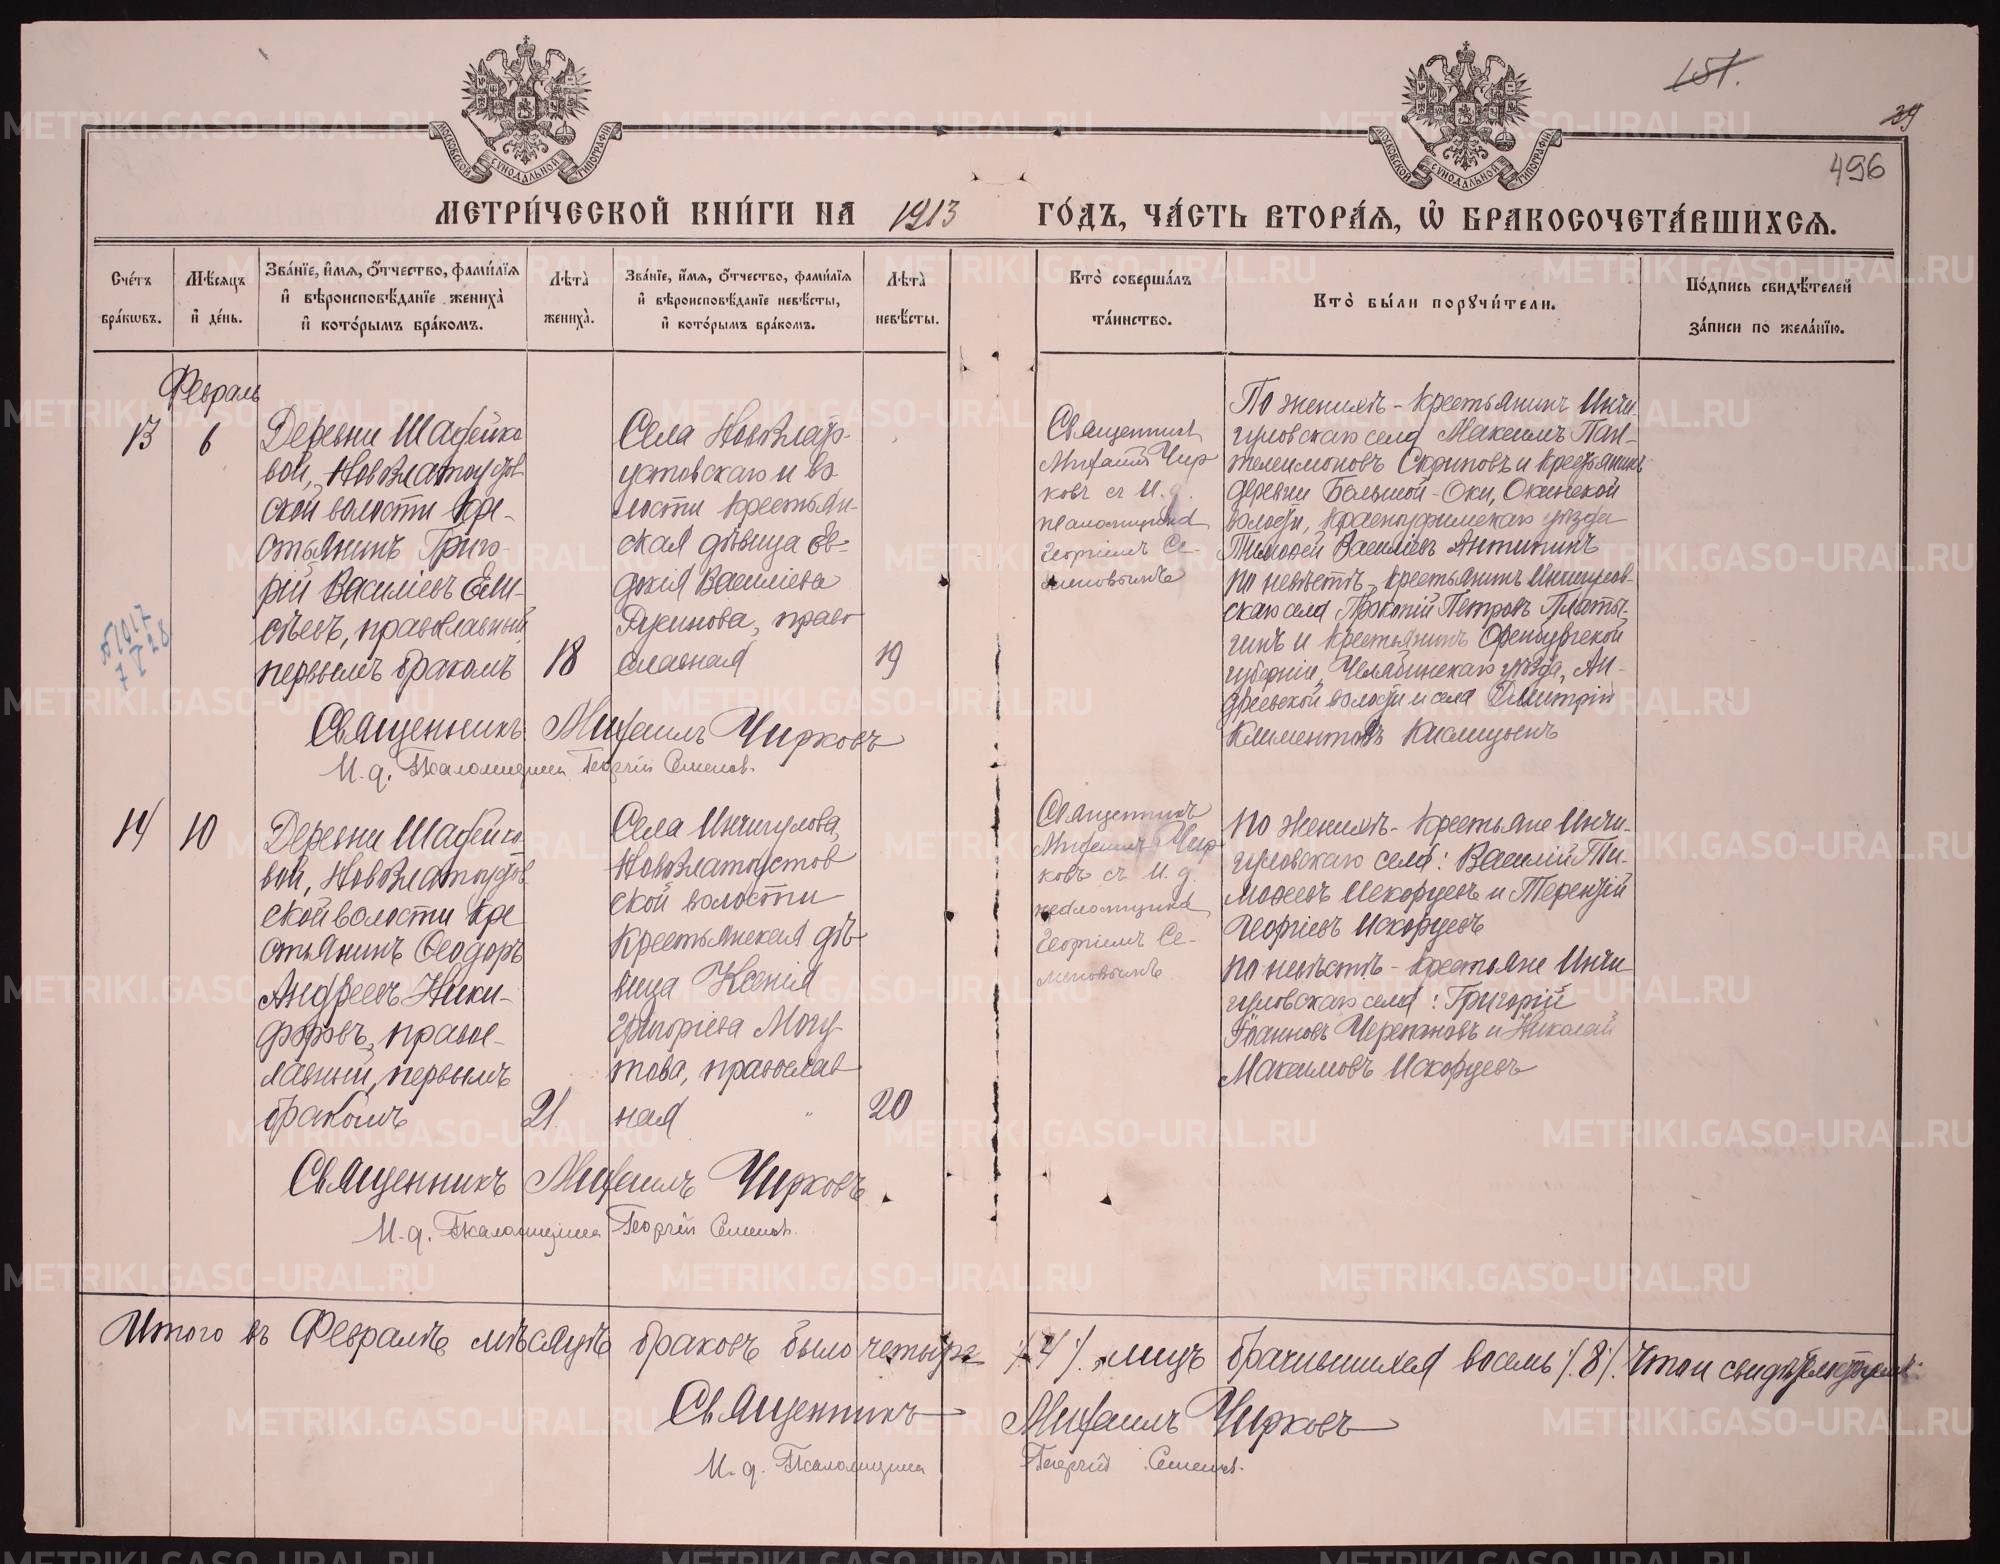 151.
39
496
МОСКОВСКОЙ СѴНОДАЛЬНОЙ ТИПОГРАФІИ
МОСКОВСКОЙ СѴНОДАЛЬНОЙ ТИПОГРАФІИ
МЕТРИ́ЧЕСКОЙ КНИ́ГИ НА 1913 ГО́ДЪ, ЧА́СТЬ ВТОРА́Я, Ѽ БРАКОСОЧЕТА́ВШИХСЯ.
Сче́тъ
бра́кѡвъ.
Мѣ́сяцъ
и҆ де́нь.
Зва́нїе, и҆́мя, ѻ҆́тчество, фами́лїя
и҆ вѣроисповѣ́данїе жениха̀
и҆ кото́рымъ бра́комъ.
Лѣта̀
жениха̀.
Зва́нїе, и҆́мя, ѻ҆́тчество, фами́лїя
и҆ вѣроисповѣ́данїе невѣ́сты,
и҆ кото́рымъ бра́комъ.
Лѣта̀
невѣ́сты.
Кто̀ соверша́лъ
та́инство.
Кто̀ бы́ли порꙋчи́тели.
По́дпись свидѣ́телей
за́писи по жела́нїю.
Февраль
13
6
Деревни Шафейко
вой, Новозлатоустов
ской волости кре-
стьянинъ Григо-
рій Василіевъ Ели-
сѣевъ, православный
первымъ бракомъ
18
Села Новозлато-
устовскаго и во
лости крестьян-
ская дѣвица Ев-
докія Василіева
Русинова, право
славная
19
Священникъ
Михаилъ Чир
ковъ съ И. д.
псаломщика
Георгіемъ Се-
меновымъ
По женихѣ - крестьянинъ Инчи
гуловскаго села Максимъ Пан-
телеимоновъ Скриповъ и крестьянинъ
деревни Большой-Оки, Окинской
волости, Красноуфимскаго уѣзда
Тимофей Василіевъ Антипинъ
по невѣстѣ, крестьянинъ Инчигулов-
скаго села Прокопій Петровъ Платы-
гинъ и крестьянинъ Оренбургской
губерніи, Челябинскаго уѣзда, Ан-
дреевской волости и села Дмитрій
Климентовъ Кислицынъ
Священникъ Михаилъ Чирковъ
И. д. Псаломщика Георгій Семенов.
14
10
Деревни Шафейко
вой, Новозлатоустов
ской волости кре
стьянинъ Ѳеодоръ
Андреевъ Ники-
форовъ, правос-
лавный, первымъ
бракомъ
21.
Села Инчигулова,
Новозлатоустов
ской волости
крестьянская дѣ-
вица Ксенія
Григоріева Могу-
това, православ
ная
20
Священникъ
Михаилъ Чир
ковъ съ И. д.
псаломщика
Георгіемъ Се-
меновымъ
По женихѣ - крестьяне Инчи-
гуловскаго села: Василій Ти-
мофеевъ Искорцевъ и Терентій
Георгіевъ Искорцевъ
По невѣстѣ - крестьяне Инчи
гуловскаго села: Григорій
Іоанновъ Черепановъ и Николай
Максимовъ Искорцевъ
Священникъ Михаилъ Чирковъ
И. д. Псаломщика Георгій Семенов.
Итого въ Февралѣ мѣсяцѣ браковъ было четыре /.4/. лицъ брачившихся восемь /.8/. Что и свидѣтельствуемъ:
Священникъ Михаилъ Чирковъ
И. д. Псаломщика Георгій Семенов.
METRIKI.GASO-URAL.RU